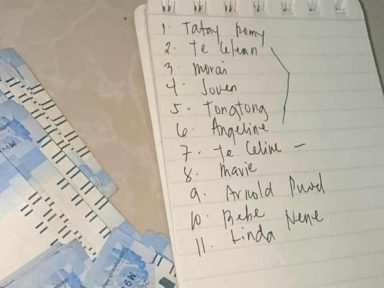 1. Tatay Romy
2. Te
3. morai
4. Joven
5. Tongtong
6. Angeline
7. Te Celine -
8. Mavie
9. Arnold
10. Bebe Nene
11. Linda